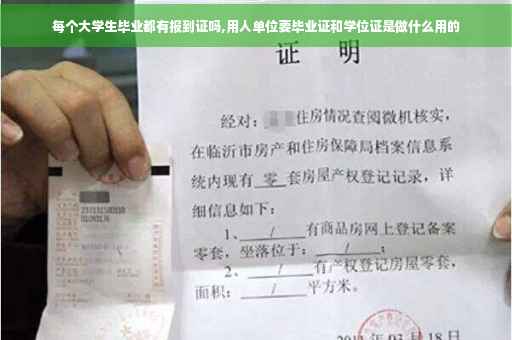 每个大学生毕业都有报到证吗,用人单位要毕业证和学位证是做什么用的
证 明
经对: 住房情况查阅微机核实,
在临沂市房产和住房保障局档案信息系
统内现有 零 套房屋产权登记记录,详
细信息如下:
1、 / 有商品房网上登记备案
零套,坐落位于: / ;
2、 / 有产权登记房屋零套,
面积: / 平方米。
03月18日